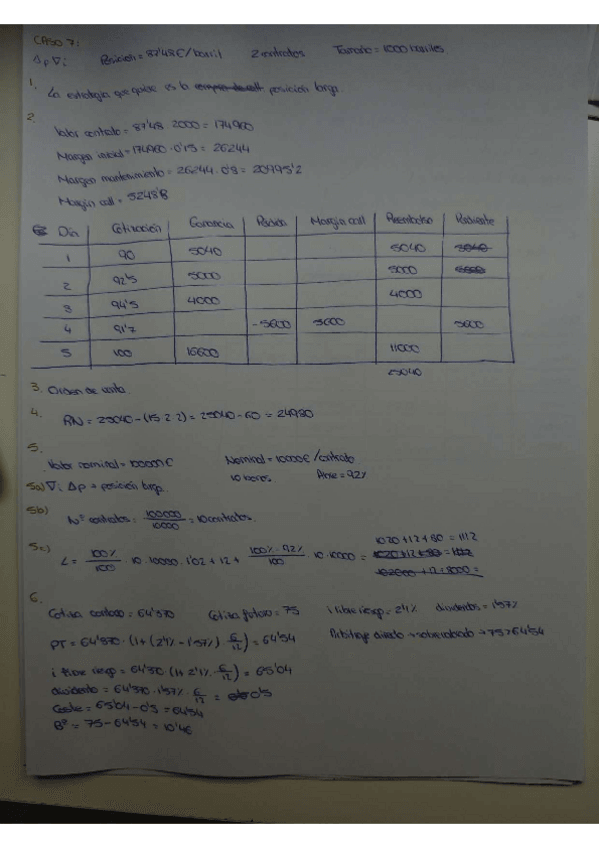 CASO 7:
Δp∇i Posición = 87'48€/barril 2 contratos Tamaño = 1000 barriles
1. La estrategia que quise es la posición larga.
2.
Valor contrato = 87'48 · 2000 = 174960
Margen inicial = 174960 · 0'15 = 26244
Margen mantenimiento = 26244 · 0'8 = 20995'2
Margin call = 5248'8
Día Cotización Ganancia Pérdida Margin call Reembolso Remanente
1 90 5040 5040 5040
2 92'5 5000 5000
3 94'5 4000 4000
4 91'7 -5600 5600 5600
5 100 16600 11000
25040
3. Orden de venta.
4. RN = 25040 - (15·2·2) = 25040 - 60 = 24980
5.
Valor nominal = 100000€ Nominal = 10000€/contrato
5a) ∇i Δp → posición larga. 10 bonos. 92%
5b) Nº contratos: 100000/10000 = 10 contratos.
5c) L = 100%/100 · 10 · 10000 · 1'02 + 12 + 100% - 92%/100 · 10 · 10000 = 1020 + 12 + 80 = 1112
6.
Cotiza contado = 64'370 Cotiza futuro = 75 i libre riesgo = 2'1% dividendos = 1'57%
PT = 64'370 · (1 + (2'1% - 1'57%) · 6/12) = 64'54 Arbitraje directo → sobrevalorado → 75 > 64'54
i libre riesgo = 64'370 (1 + 2'1% · 6/12) = 65'04
dividendo = 64'370 · 1'57% · 6/12 = 0'5
Coste = 65'04 - 0'5 = 64'54
Bº = 75 - 64'54 = 10'46